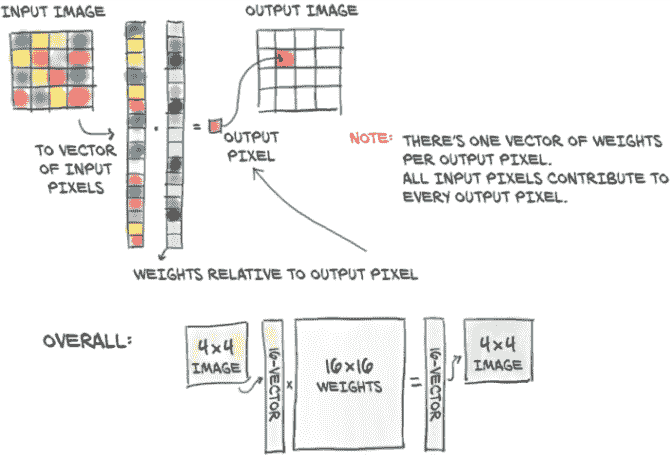 INPUT IMAGE
OUTPUT IMAGE
TO VECTOR
OF INPUT
PIXELS
.
=
OUTPUT
PIXEL
NOTE: THERE'S ONE VECTOR OF WEIGHTS
PER OUTPUT PIXEL.
ALL INPUT PIXELS CONTRIBUTE TO
EVERY OUTPUT PIXEL.
WEIGHTS RELATIVE TO OUTPUT PIXEL
OVERALL:
4×4
IMAGE
16-VECTOR
×
16×16
WEIGHTS
=
16-VECTOR
4×4
IMAGE